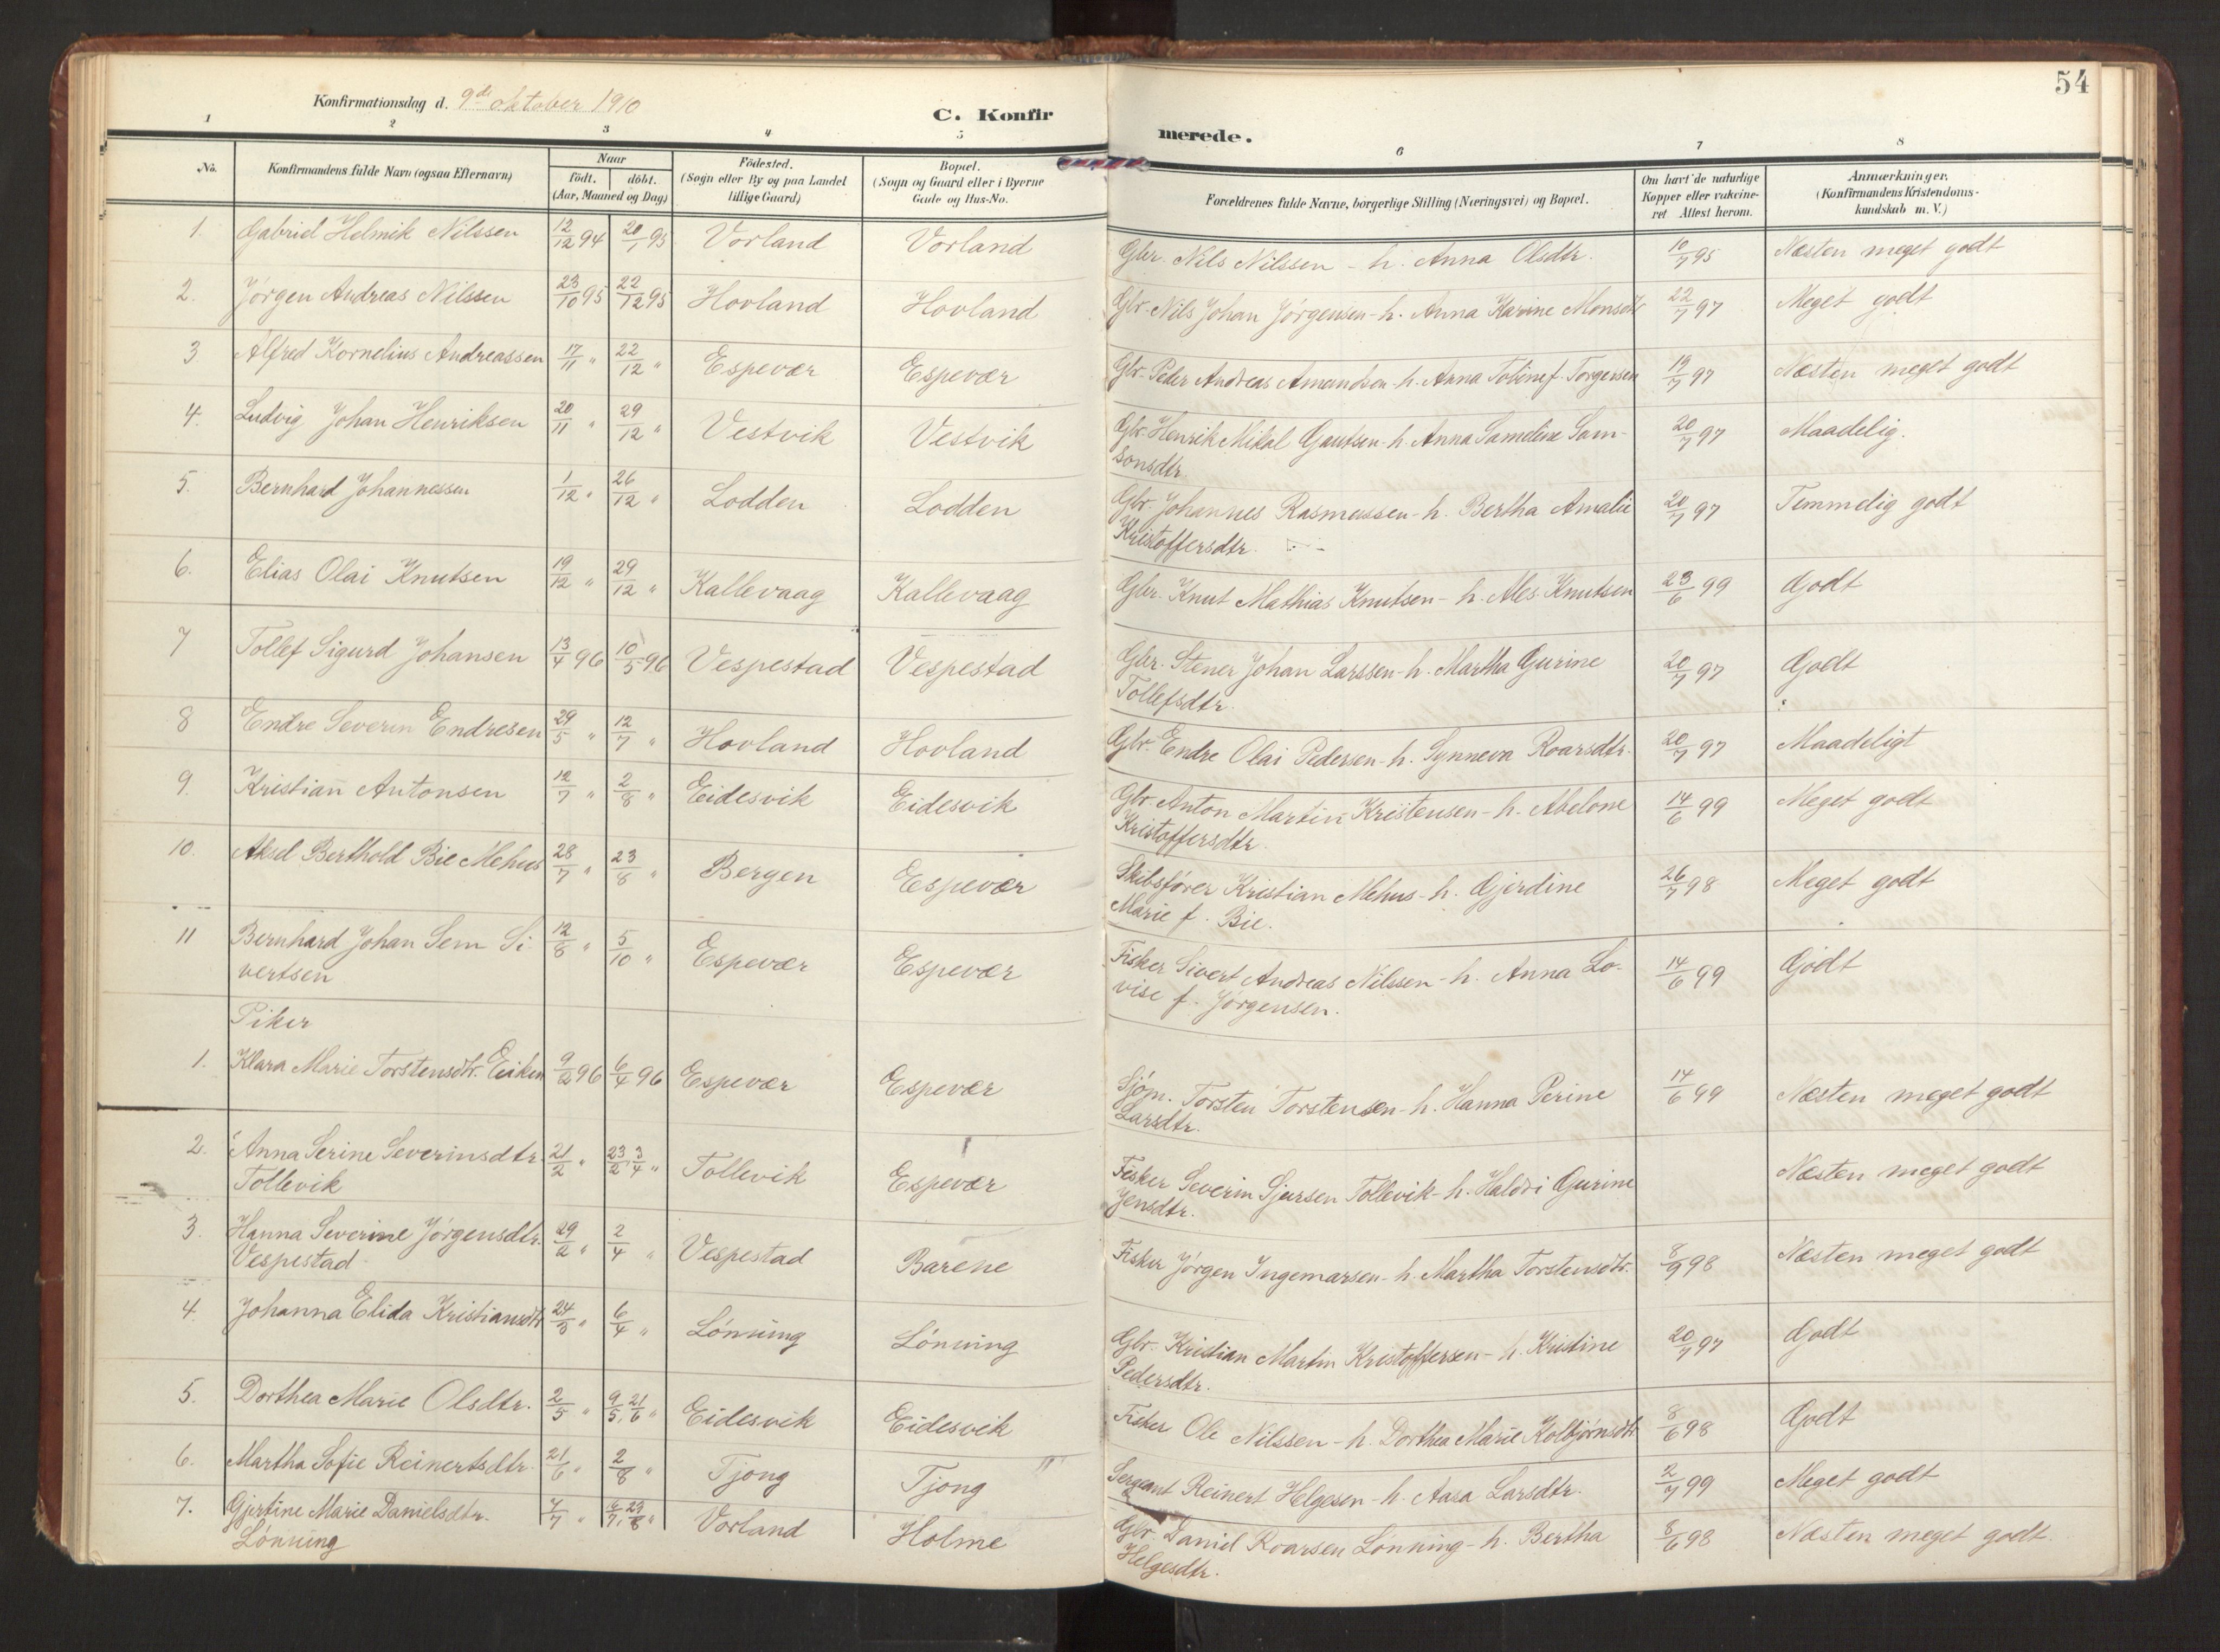 54
Konfirmationsdag d. 9de oktober 1910
C. Konfirmerede.
1 2 3 4 5 6 7 8
No.
Konfirmandens fulde Navn (ogsaa Efternavn)
Naar
født. døbt.
(Aar, Maaned og Dag)
Fødested.
(Sogn eller By og paa Landet
tillige Gaard)
Bopæl.
(Sogn og Gaard eller i Byerne
Gade og Hus-No.
Forældrenes fulde Navne, borgerlige Stilling (Næringsvei) og Bopæl.
Om havt de naturlige
Kopper eller vakcine-
ret Attest herom.
Anmærkninger.
(Konfirmandens Kristendoms-
kundskab m. V.)
1. Gabriel Helmik Nilssen 12/12 94 20/1 95 Vorland Vorland Gbr. Nils Nilssen - h. Anna Olsdtr. 10/7 95 Næsten meget godt
2. Jørgen Andreas Nilssen 23/10 95 22/12 95 Hovland Hovland Gbr. Nils Johan Jørgensen - h. Anna Karine Monsdtr 22/7 97 Meget godt
3. Alfred Kornelius Andreassen 17/11 " 22/12 " Espevær Espevær Gbr. Peder Andreas Amandsen - h. Anna f. Torgersen 19/7 97 Næsten meget godt
4. Ludvig Johan Henriksen 20/11 " 29/12 " Vestvik Vestvik Gbr. Henrik Mikal Gautsen - h. Anna Sameline Sam-
sonsdtr. 20/7 97 Maadelig.
5. Bernhard Johannessen 1/12 " 26/12 " Lodden Lodden Gbr. Johannes Rasmussen - h. Bertha Amalie
Kristoffersdtr. 20/7 97 Temmelig godt
6. Elias Olai Knutsen 19/12 " 29/12 " Kallevaag Kallevaag Gbr. Knut Mathias Knutsen - h. Ales Knutsen 23/6 99 Godt
7 Tollef Sigurd Johansen 13/4 96 10/5 96 Vespestad Vespestad Gbr. Stener Johan Larssen - h. Martha Gurine
Tollefsdtr. 20/7 97 Godt
8 Endre Severin Endresen 29/5 " 12/7 " Hovland Hovland Gbr. Endre Olai Pedersen - h. Synneva Roarsdtr. 20/7 97 Maadeligt
9. Kristian Antonsen 12/7 " 2/8 " Eidesvik Eidesvik Gbr. Anton Martin Kristensen - h. Abelone
Kristoffersdtr. 14/6 99 Meget godt
10. Aksel Berthold Bie Mehus 28/7 " 23/8 " Bergen Espevær Skibsfører Kristian Mehus - h. Gjerdine
Marie f. Bie. 26/7 98 Meget godt
11 Bernhard Johan Sem Si-
vertsen 12/8 " 5/10 " Espevær Espevær Fisker Sivert Andreas Nilssen - h. Anna Lo-
vise f. Jørgensen. 14/6 99 Godt
Piker
1. Klara Marie Torstensdtr. Eiken 9/2 96 6/4 96 Espevær Espevær Sjøm. Torsten Torstensen - h. Hanna Perine
Larsdtr. 14/6 99 Næsten meget godt
2. Anna Serine Severinsdtr.
Tollevik 21/2 " 23/2, 3/4 " Tollevik Espevær Fisker Severin Sjursen Tollevik - h. Haldri Gurine
Jensdtr. Næsten meget godt
3. Hanna Severine Jørgensdtr.
Vespestad. 29/2 " 2/4 " Vespestad Barene Fisker Jørgen Ingemarsen - h. Martha Torstensdtr. 8/9 98 Næsten meget godt
4. Johanna Elida Kristiansdtr 24/3 " 6/4 " Lønning Lønning Gbr. Kristian Martin Kristoffersen - h. Kristine
Pedersdtr. 20/7 97 Godt
5. Dorthea Marie Olsdtr. 2/5 " 9/5, 21/6 " Eidesvik Eidesvik Fisker Ole Nilssen - h. Dorthea Marie Kolbjørnsdtr 8/6 98 Godt
6. Martha Sofie Reinertsdtr. 21/6 " 2/8 " Tjong Tjong Sergeant Reinert Helgesen - h. Aasa Larsdtr. 2/7 99 Meget godt
7. Gjertine Marie Danielsdtr.
Lønning 4/7 " 23/8 " Vorland Holme Gbr. Daniel Roarsen Lønning - h. Bertha
Helgesdtr. 8/6 98 Næsten meget godt.